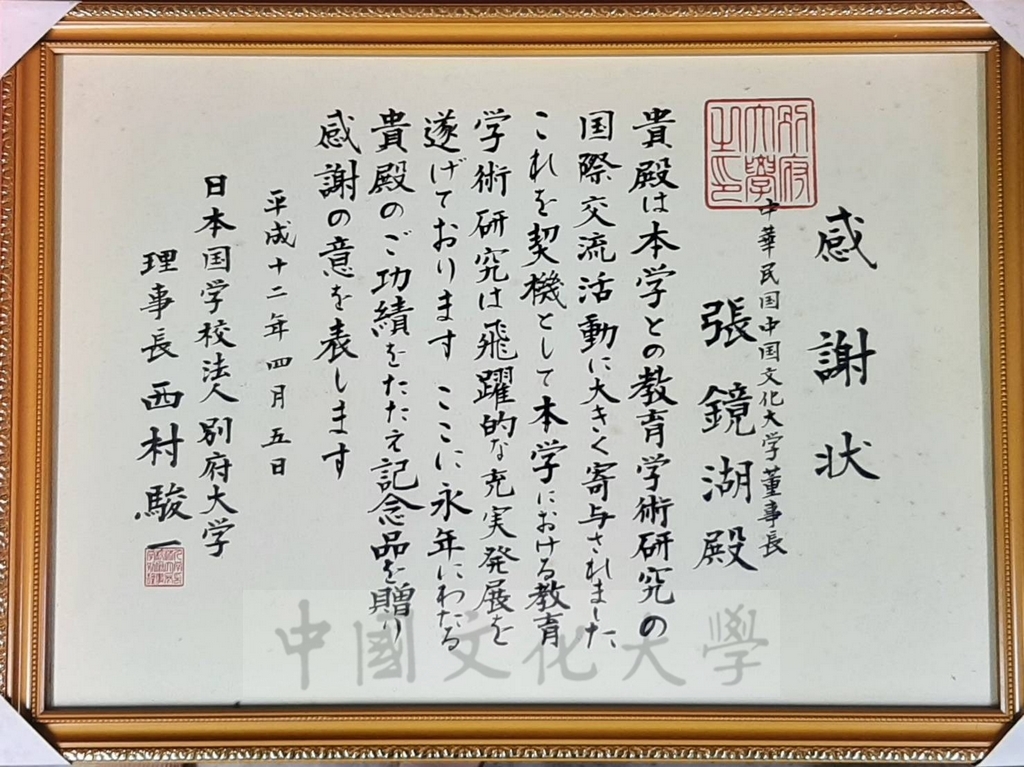 感謝状
中華民国中国文化大学董事長
張鏡湖殿
別府大學之印
貴殿は本学との教育学術研究の
国際交流活動に大きく寄与されました
これを契機として本学における教育
学術研究は飛躍的な充実発展を
遂げております ここに永年にわたる
貴殿のご功績をたたえ記念品を贈り
感謝の意を表します
平成十二年四月五日
日本国学校法人別府大学
理事長 西村駿一
中國文化大學